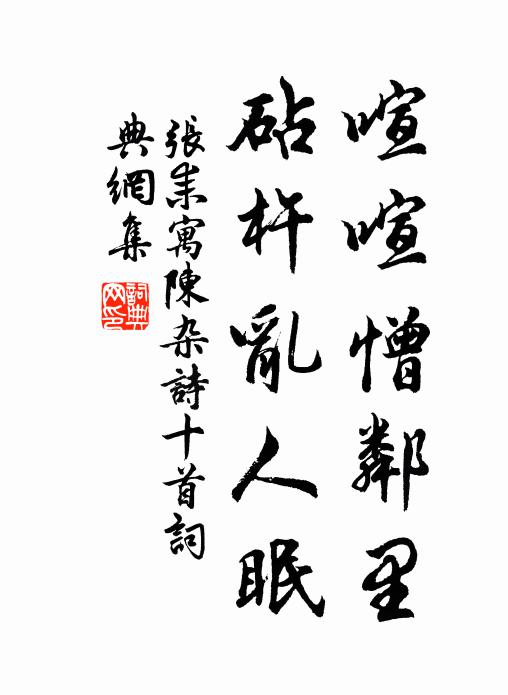 喧喧憎鄰里
砧杵亂人眠
張耒寓陳杂詩十首詞
典網集
詞典網印